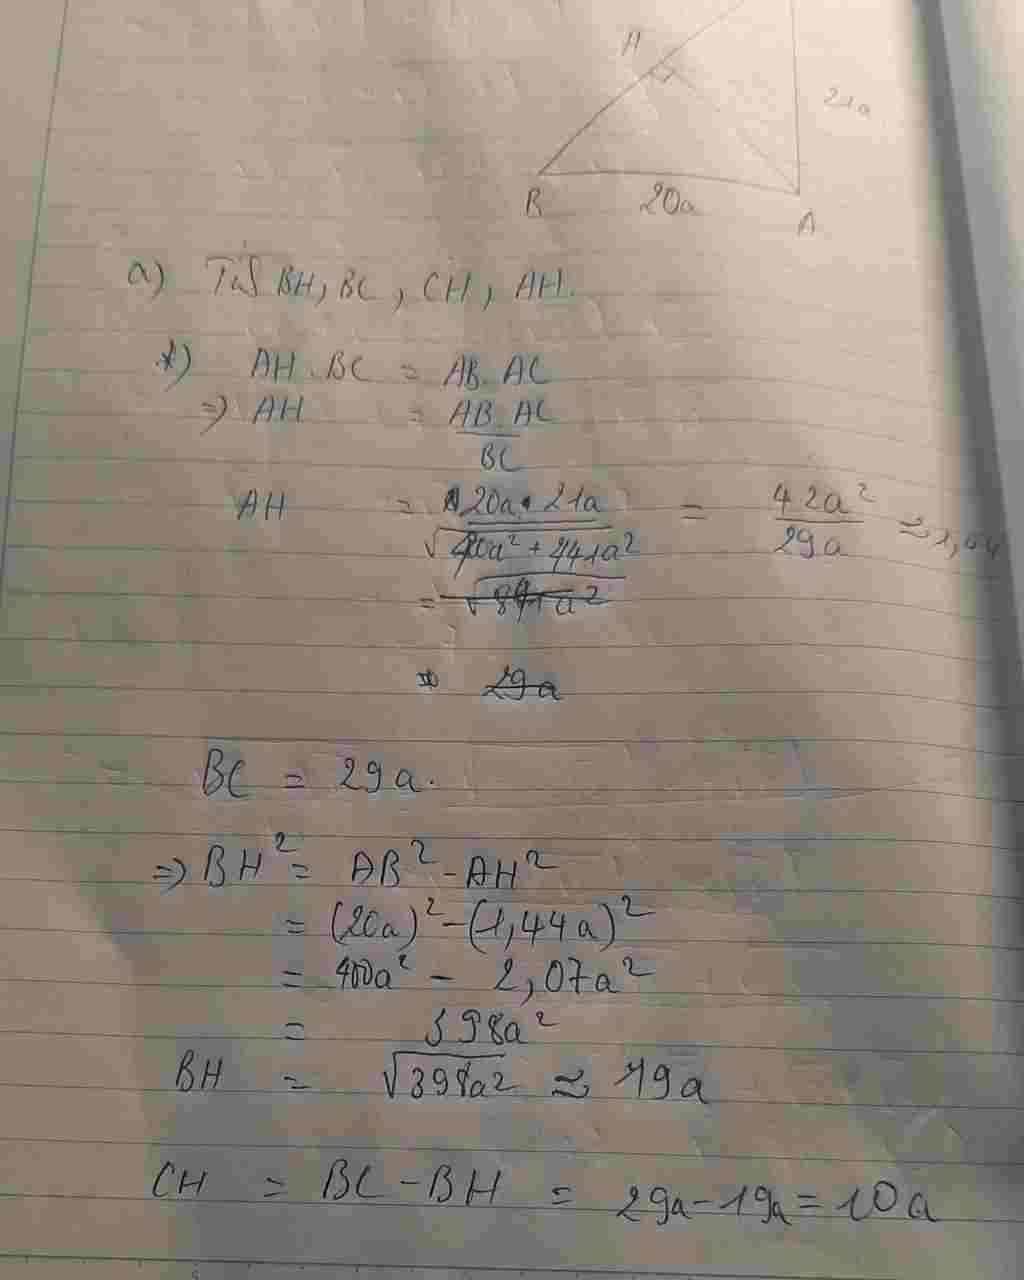 H
21a
B
20a
A
a) Tis BH, BC, CH, AH.
*) AH . BC = AB. AC
=> AH = AB. AC
BC
AH = 20a. 21a = 42a² ≈ 1,44
√400a² + 441a² 29a
= √841a²
29a
BC = 29a.
=> BH² = AB² - AH²
= (20a)² - (1,44a)²
= 400a² - 2,07a²
= 398a²
BH = √398a² ≈ 19a
CH = BC - BH = 29a - 19a = 10a